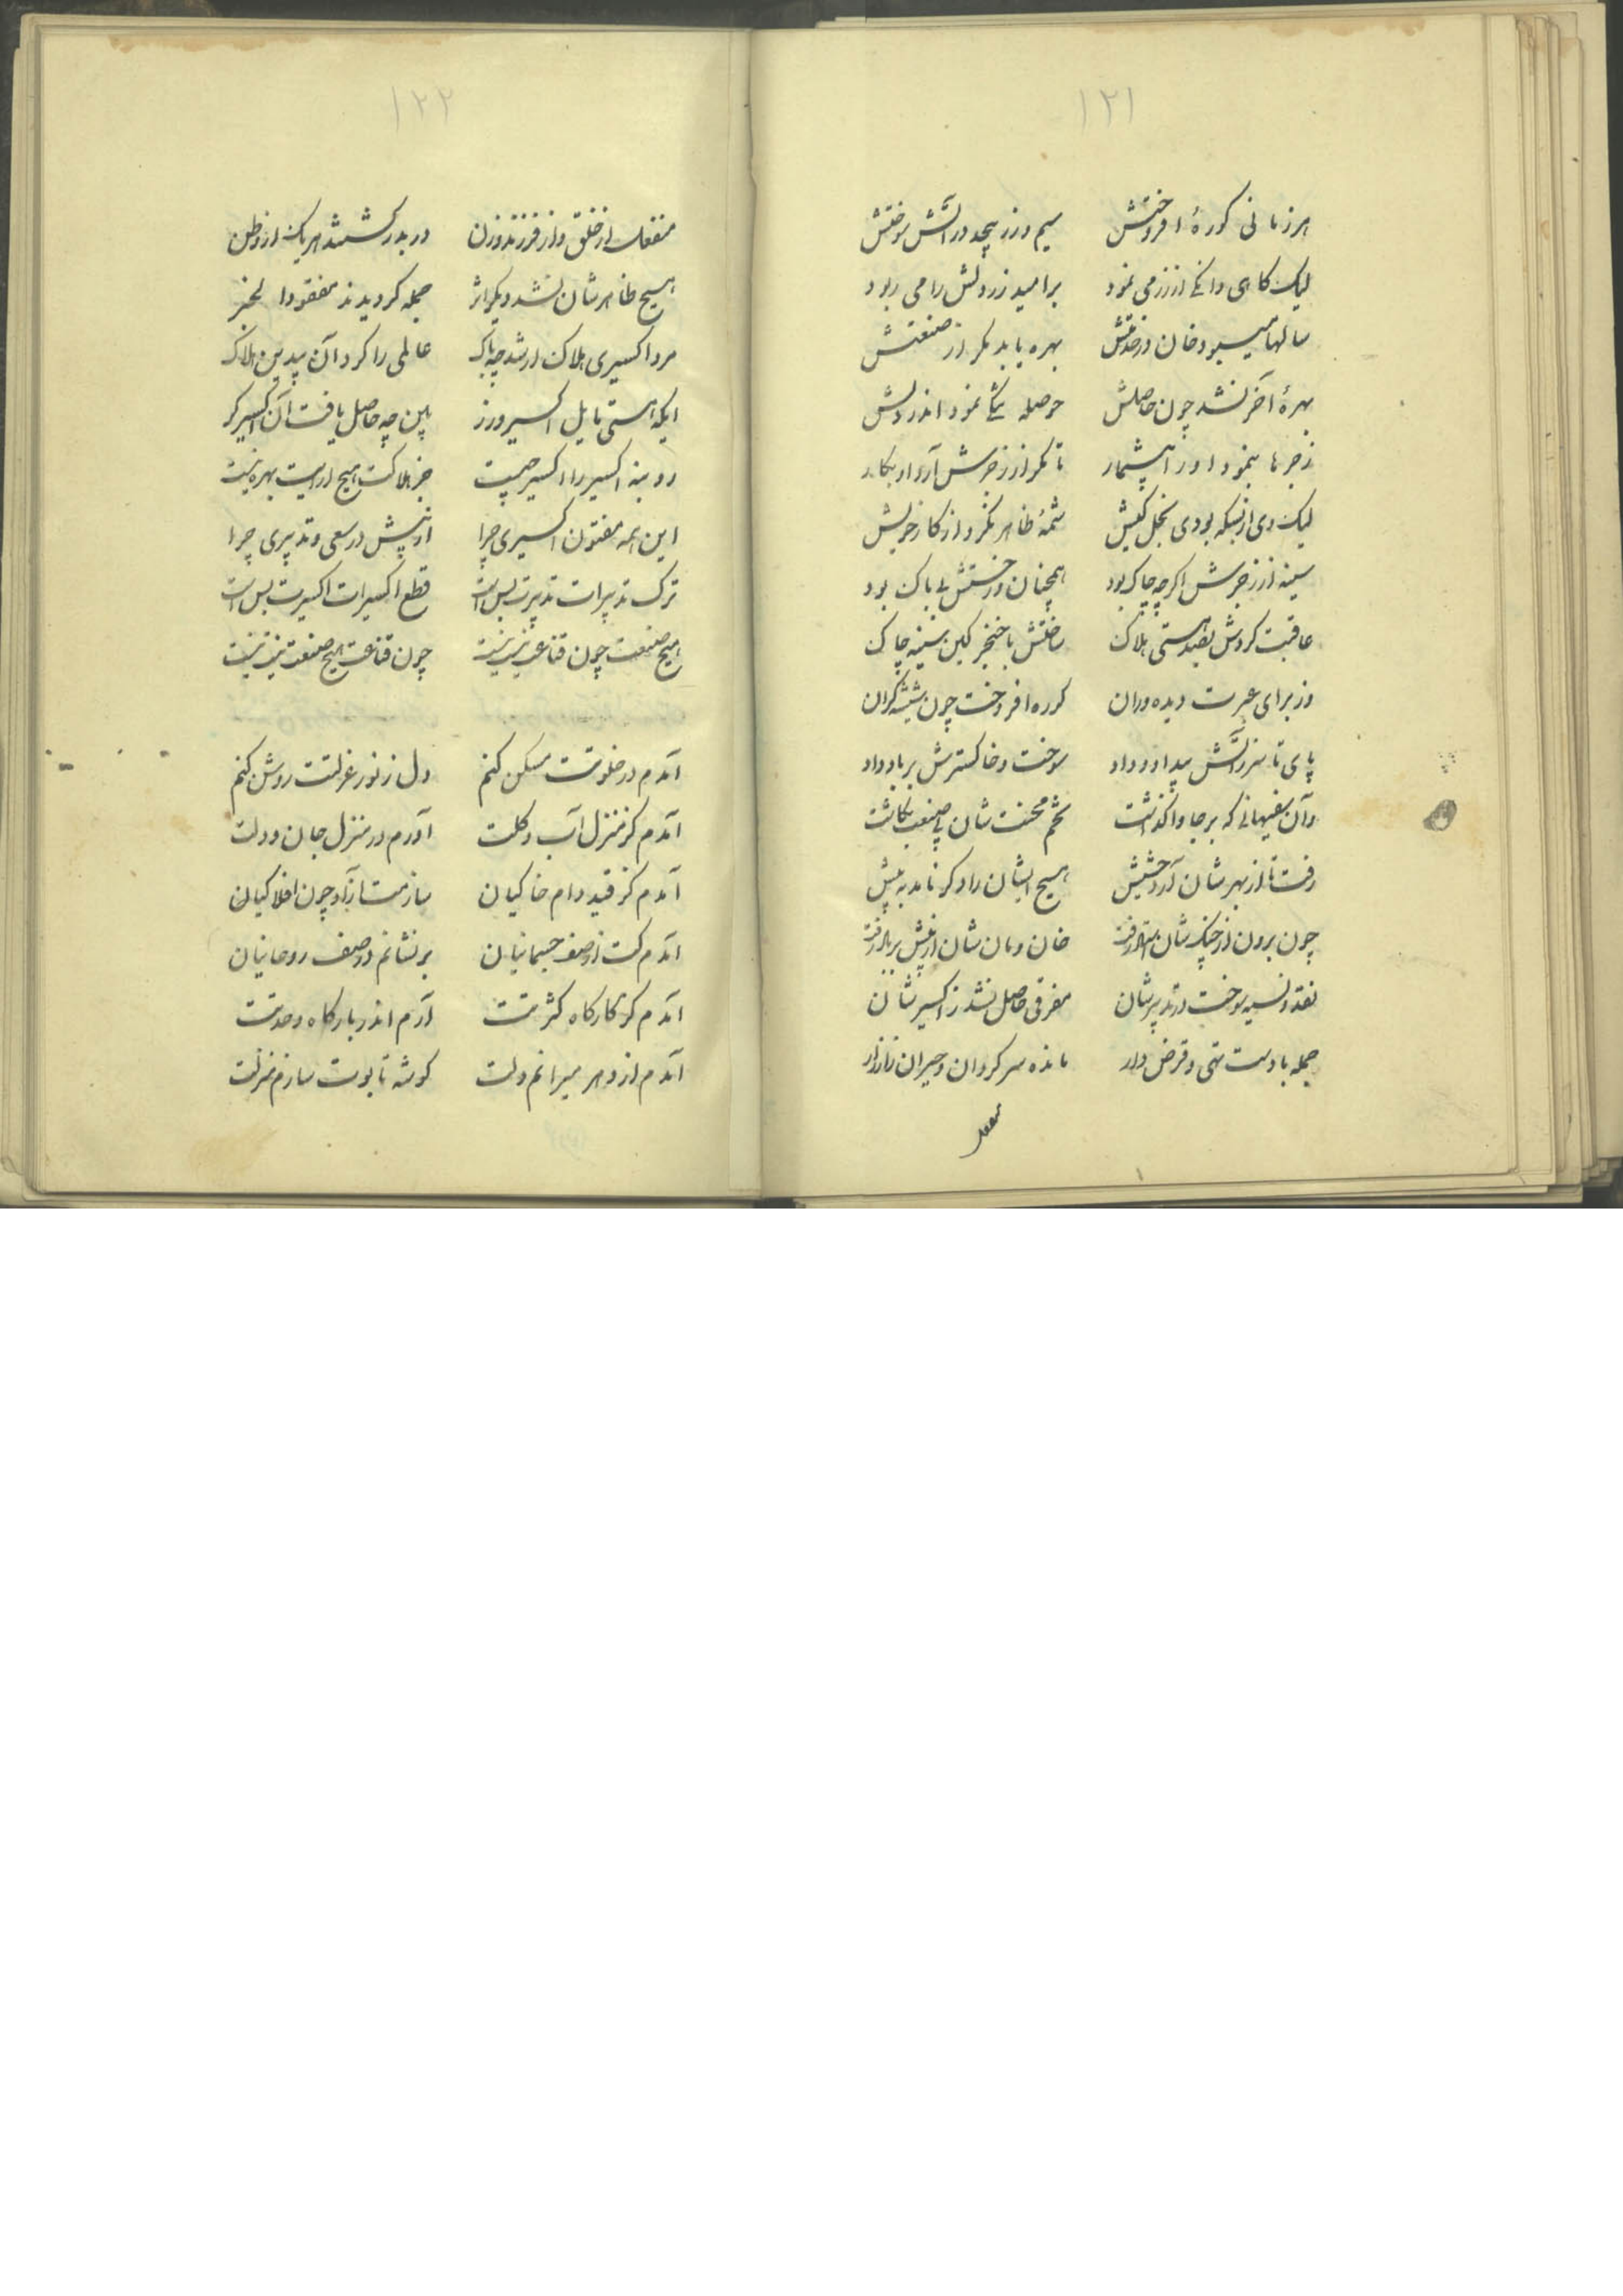 ١٢١
هر زمانی کورهٔ افروختش سیم و زر بیحد در آتش سوختش
لیک کاهی دانکی از زر می نمود بر امید زر دلش را می ربود
سالها میبود خان در خدمتش بهره یابد مکر از صنعتش
بهرهٔ آخر نشد چون حاصلش حوصله تنکی نمود اندر دلش
زجرها بنمود او را بیشمار تا مکر از زجرش آرد او بکار
لیک وی از بسکه بودی بخل کیش شمهٔ ظاهر نکرد از کار خویش
سینه از زجرش اکرچه چاک بود همچنان در خستش بی باک بود
عاقبت کردش بصد هستی هلاک ساختش با خنجر کین سینه چاک
وز برای عبرت دیده وران کوره افروخت چون شیشه کران
پای تا سر زآتش بیداد داد سوخت و خاکسترش بر باد داد
وآن سفیهانی که بر جا واکذاشت تخم محنت شان پی صنعت بکاشت
رفت تا از بهر شان آرد حشیش هیچ ایشان را دکر نامد به پیش
چون برون از چنک شان رفت خان و مان شان از پیش بر باد رفت
نقد و نسیه سوخت در تدبیرشان مغرقی حاصل نشد ز اکسیرشان
جمله با دست تهی و قرض دار مانده سرکردان و حیران زار زار
منفعل
١٢٢
منفعل از خلق و از فرزند و زن در بدر کشتند هر یک از وطن
هیچ ظاهر شان نشد دیکر اثر جمله کردیدند مفقود الخبر
مرد اکسیری هلاک ار شد چه باک عالمی را کرد آن بیدین هلاک
ایکه هستی مایل اکسیر و زر بین چه حاصل یافت آن اکسیرکر
رو بنه اکسیر را اکسیر چیست جز هلاکت هیچ ازینت بهره نیست
این همه مفتون اکسیری چرا از پیش در سعی و تدبیری چرا
ترک تدبیرات تدبیرت بس است قطع اکسیرات اکسیرت بس است
هیچ صنعت چون قناعت نیست نیست چون قناعت هیچ صنعت نیست نیست
آمدم در خلوتت مسکن کنم دل ز نور عزلتت روشن کنم
آمدم کز منزل آب و کلت آورم در منزل جان و دلت
آمدم کز قید دام خاکیان سازمت آزاد چون افلاکیان
آمدم کت از صف جسمانیان بر نشانم در صف روحانیان
آمدم کز کارکاه کثرتت آرم اندر بارکاه وحدتت
آمدم از دهر میرانم دلت کوشه تابوت سازم منزلت